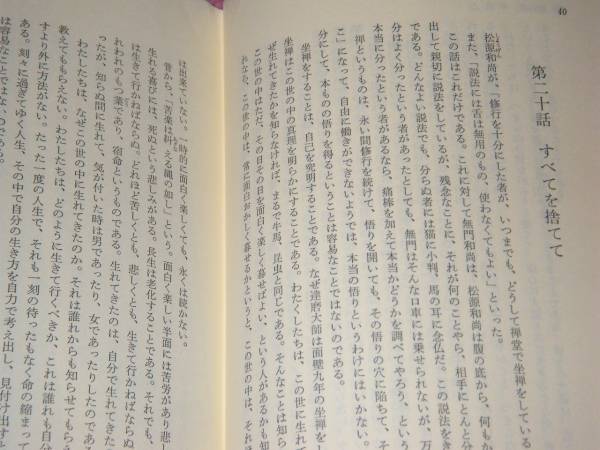 40
第二十話　すべてを捨てて
松源和尚が、「修行を十分にした者が、いつまでも、どうして禅堂で坐禅をしている
また、「説法には舌は無用のもの、使わなくてもよい」といった。
この話はこれだけである。これに対して無門和尚は、松源和尚は腹の底から、何もか
出して親切に説法をしているが、残念なことに、それが何のことやら、相手にとんと分
である。どんなよい説法でも、分らぬ者には猫に小判、馬の耳に念仏だ。この説法をき
分はよく分ったという者があったとしても、無門はそんな口車には乗せられないが、万
本当に分ったという者があるなら、痛棒を加えて本当かどうかを調べてやろう、という
禅というものは、永い間修行を続けて、悟りを開いても、その悟りの穴に陥ちて、そ
こ」になって、自由に働きができないようでは、本当の悟りというわけにはいかない。
分にして、本ものの悟りを得るということは容易なことではないのである。
坐禅をすることは、自己を究明することである。なぜ達磨大師は面壁九年の坐禅をし
坐禅はこの世の中の真理を明らかにすることである。わたくしたちは、この世に生れて
ぜ生れてきたかを知らなければ、まるで牛馬、昆虫と同じである。そんなことは知らな
この世の中はただ、その日その日を面白く楽しく暮せばよい、という人があるかも知
れない。この世の中は、常に面白おかしく暮せるかというと、この世の中は、それほ
は出来ていない。一時的に面白く楽しくても、永くは続かない。
昔から、「苦楽は糾える縄の如し」という。面白く楽しい半面には苦労があり悲し
生れる喜びには、死ぬという悲しみがある。長生は老化することである。それでも、
は生きて行かねばならぬ。どれほど苦しくとも、悲しくとも、生きて行かねばならぬ
れわれのもつ業であり、宿命というものである。生れてきたのは、自分で生れてきた
ったが、知らぬ間に生れて、気が付いた時は男であったり、女であったりしたのであ
わたしたちは、なぜこの世の中に生れてきたのか。それは誰れからも知らせてもらえ
教えてももらえない。わたしたちは、どのように生きて行くべきか、これは誰れも自分
すより外に方法がない。たった一度の人生で、それも一刻の待ったもなく命の縮まって
ある。刻々に過ぎてゆく人生、その中で自分の生き方を自力で考え出し、見付け出すと
は容易なことではないのである。